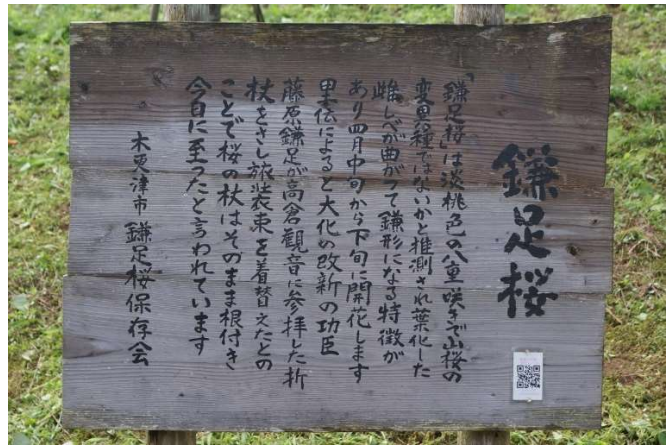 鎌足桜
「鎌足桜」は淡桃色の八重咲きで山桜の
変異種ではないかと推測され葉化した
雌しべが曲がって鎌形になる特徴が
あり四月中旬から下旬に開花します
里伝によると大化の改新の功臣
藤原鎌足が高倉観音に参拝した折
杖をさし旅装束を着替えたとの
ことで桜の杖はそのまま根付き
今日に至ったと言われています
木更津市 鎌足桜保存会